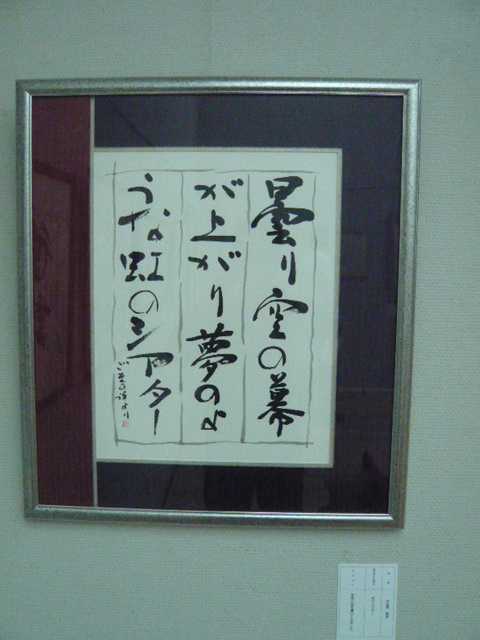 曇り空の幕
が上がり夢のよ
うな虹のシアター